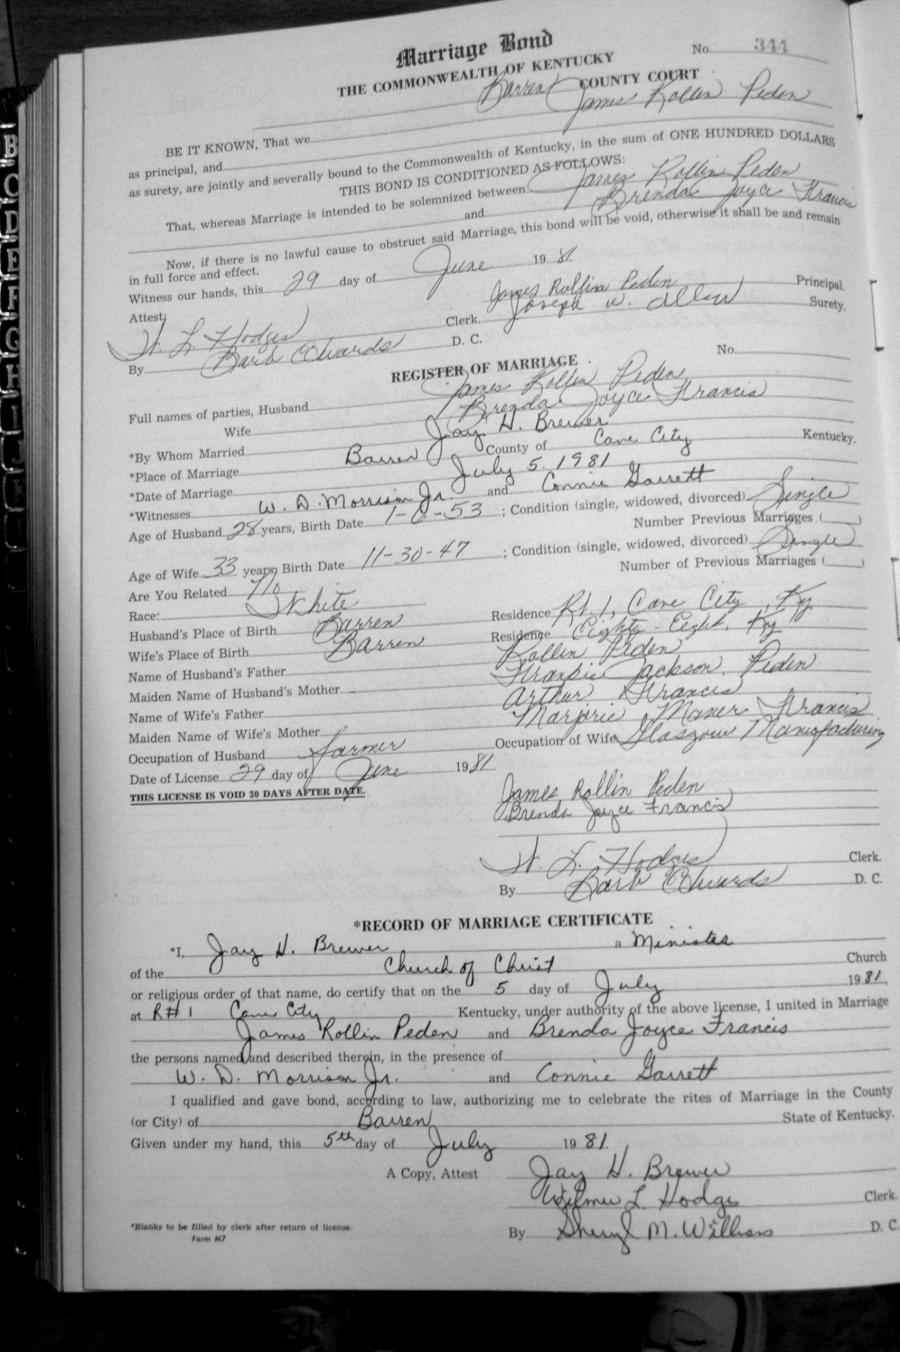 Marriage Bond
No. 344
THE COMMONWEALTH OF KENTUCKY
Barren COUNTY COURT
BE IT KNOWN, That we James Rollin Peden
as principal, and
as surety, are jointly and severally bound to the Commonwealth of Kentucky, in the sum of ONE HUNDRED DOLLARS
THIS BOND IS CONDITIONED AS FOLLOWS:
That, whereas Marriage is intended to be solemnized between James Rollin Peden
and Brenda Joyce Francis
Now, if there is no lawful cause to obstruct said Marriage, this bond will be void, otherwise it shall be and remain
in full force and effect.
Witness our hands, this 29 day of June 1981
James Rollin Peden Principal.
Attest: Joseph W. Allen Surety.
W. L. Hodges Clerk.
By Barb Edwards D. C.
REGISTER OF MARRIAGE No.
Full names of parties, Husband James Rollin Peden
Wife Brenda Joyce Francis
*By Whom Married Jay H. Brewer
*Place of Marriage Barren County of Cave City Kentucky.
*Date of Marriage July 5, 1981
*Witnesses W. D. Morrison Jr. and Connie Garrett
Age of Husband 28 years, Birth Date 1-6-53; Condition (single, widowed, divorced) Single
Number Previous Marriages ( )
Age of Wife 33 years, Birth Date 11-30-47; Condition (single, widowed, divorced) Single
Number of Previous Marriages ( )
Are You Related No
Race: White Residence Rt. 1, Cave City, Ky
Husband's Place of Birth Barren Residence Eighty-Eight, Ky
Wife's Place of Birth Barren
Name of Husband's Father Rollin Peden
Maiden Name of Husband's Mother Jackson Peden
Name of Wife's Father Arthur Francis
Maiden Name of Wife's Mother Marjorie Maner Francis
Occupation of Husband farmer Occupation of Wife Glasgow Manufacturing
Date of License 29 day of June 1981
THIS LICENSE IS VOID 30 DAYS AFTER DATE.
James Rollin Peden
Brenda Joyce Francis
W. L. Hodges Clerk.
By Barb Edwards D. C.
*RECORD OF MARRIAGE CERTIFICATE
*I, Jay H. Brewer a Minister
of the Church of Christ Church
or religious order of that name, do certify that on the 5 day of July 1981,
at R#1 Cave City Kentucky, under authority of the above license, I united in Marriage
James Rollin Peden and Brenda Joyce Francis
the persons named and described therein, in the presence of
W. D. Morrison Jr. and Connie Garrett
I qualified and gave bond, according to law, authorizing me to celebrate the rites of Marriage in the County
(or City) of Barren State of Kentucky.
Given under my hand, this 5th day of July 1981.
A Copy, Attest Jay H. Brewer
Wilmer L. Hodges Clerk.
By Sheryl M. Williams D. C.
*Blanks to be filled by clerk after return of license.
Form M7
B
C
D
E
F
G
H
I
J
K